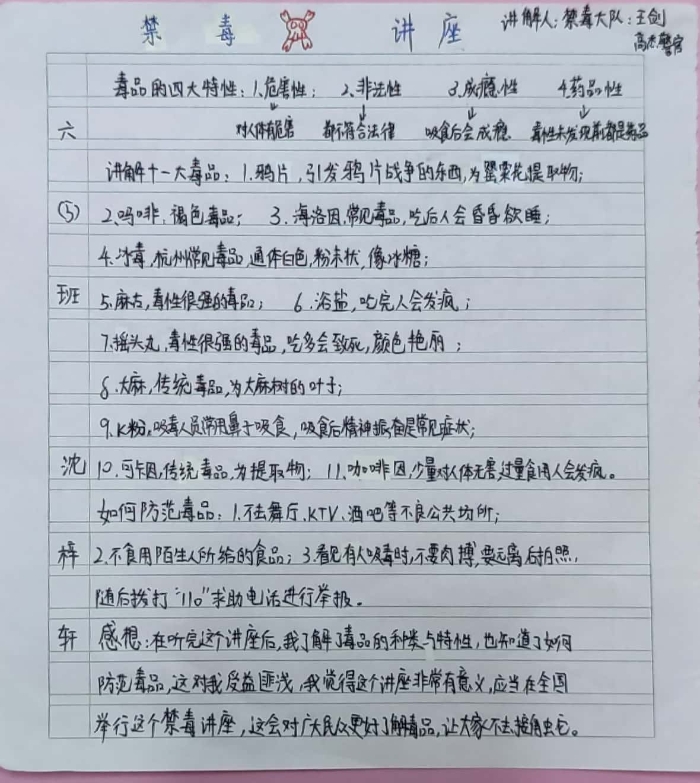 禁毒 讲座
讲解人：禁毒大队：王剑
高杰警官
毒品的四大特性：1.危害性； 2.非法性 3.成瘾性 4.药品性
对人体有危害 都不符合法律 吸食后会成瘾 毒性未发现前都是药品
讲解十一大毒品：1.鸦片，引发鸦片战争的东西，为罂粟花提取物；
2.吗啡，褐色毒品； 3.海洛因，常见毒品，吃后人会昏昏欲睡；
4.冰毒，杭州常见毒品，通体白色，粉末状，像冰糖；
5.麻古，毒性很强的毒品； 6.浴盐，吃完人会发疯；
7.摇头丸，毒性很强的毒品，吃多会致死，颜色艳丽；
8.大麻，传统毒品，为大麻树的叶子；
9.K粉，吸毒人员常用鼻子吸食，吸食后精神振奋是常见症状；
10.可卡因，传统毒品，为提取物； 11.咖啡因，少量对人体无害，过量食用人会发疯。
如何防范毒品：1.不去舞厅、KTV、酒吧等不良公共场所；
2.不食用陌生人所给的食品；3.看见有人吸毒时，不要肉搏，要远离后拍照，
随后拨打“110”求助电话进行举报。
感想：在听完这个讲座后，我了解了毒品的种类与特性，也知道了如何
防范毒品，这对我受益匪浅，我觉得这个讲座非常有意义，应当在全国
举行这个禁毒讲座，这会对广大民众更好了解毒品，让大家不去接触它。
六
⑤
班
沈
梓
轩